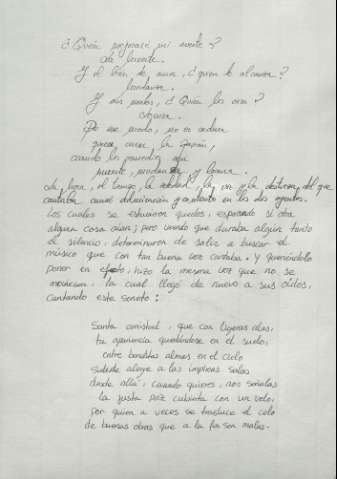 ¿Quién mejorará mi suerte?
La muerte.
Y el bien de amor, ¿quien le alcanza?
Mudanza.
Y sus males, ¿Quién los cura?
Locura.
De ese modo, no es cordura
querer curar la pasión,
cuando los remedios son
muerte, mudanza y locura.
La hora, el tiempo, la soledad, la voz y la destreza del que
cantaba causó admiración y contento en los dos oyentes.
los cuales se estuvieron quedos, esperando si otra
alguna cosa oían; pero viendo que duraba algún tanto
el silencio, determinaron de salir a buscar el
músico que con tan buena voz cantaba. Y queriéndolo
poner en efeto, hizo la mesma voz que no se
moviesen, la cual llegó de nuevo a sus oídos,
cantando este soneto:
Santa amistad, que con ligeras alas,
tu apariencia quedándose en el suelo,
entre benditas almas en el cielo
subiste alegre a las impíreas salas
desde allá, cuando quieres, nos señalas
la justa paz cubierta con un velo,
por quien a veces se trasluce el celo
de buenas obras que a la fin son malas.